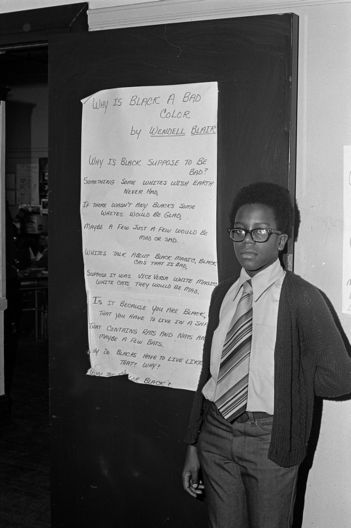 WHY IS BLACK A BAD
COLOR
by WENDELL BLAIR
WHY IS BLACK SUPPOSE TO BE
BAD?
SOMETHING SOME WHITES WISH EARTH
NEVER HAD,
IF THERE WASN'T ANY BLACKS SOME
WHITES WOULD BE GLAD,
MAYBE A FEW JUST A FEW WOULD BE
MAD OR SAD.
WHITES TALK ABOUT BLACK MAGIC, BLACK
CATS THAT IS BAD,
SUPPOSE IT WAS VICE VERSA WHITE MAGIC
WHITE CATS THEY WOULD BE MAD.
IS IT BECAUSE YOU ARE BLACK,
THAT YOU HAVE TO LIVE IN A
THAT CONTAINS RATS AND
MAYBE A FEW BATS.
WHY DO BLACKS HAVE TO LIVE LIKE
THAT? WHY?
BLACK?